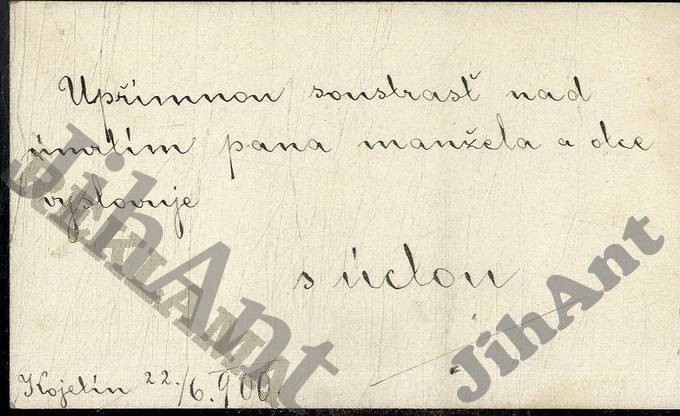 Upřímnou soustrast nad
úmrtím pana manžela a otce
vyslovuje
s úctou
Kojetín 22./6. 900.
JihAnt
REKLAMA
JihAnt